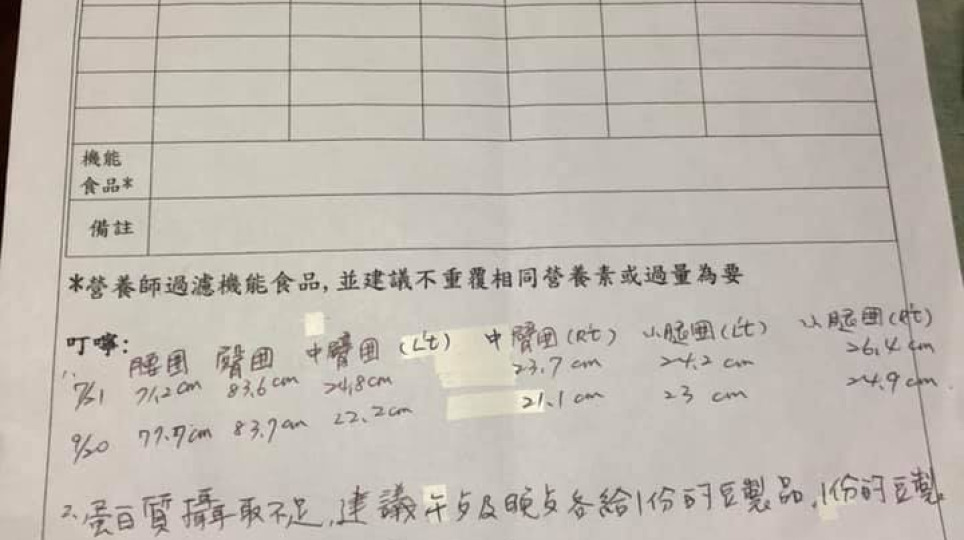 機能
食品*
備註
*營養師過濾機能食品,並建議不重覆相同營養素或過量為要
叮嚀:
腰圍 臀圍 中臂圍 (L't) 中臂圍 (R't) 小腿圍 (L't) 小腿圍 (R't)
7/21 71.2 cm 83.6 cm 24.8 cm 23.7 cm 24.2 cm 26.4 cm
9/20 83.7 cm 22.2 cm 21.1 cm 23 cm 24.9 cm
2. 蛋白質攝取不足,建議午点及晚点各給1份的豆製品,1份的豆製